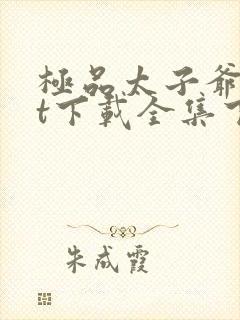 極品太子爺
t下載全集
朱成霞